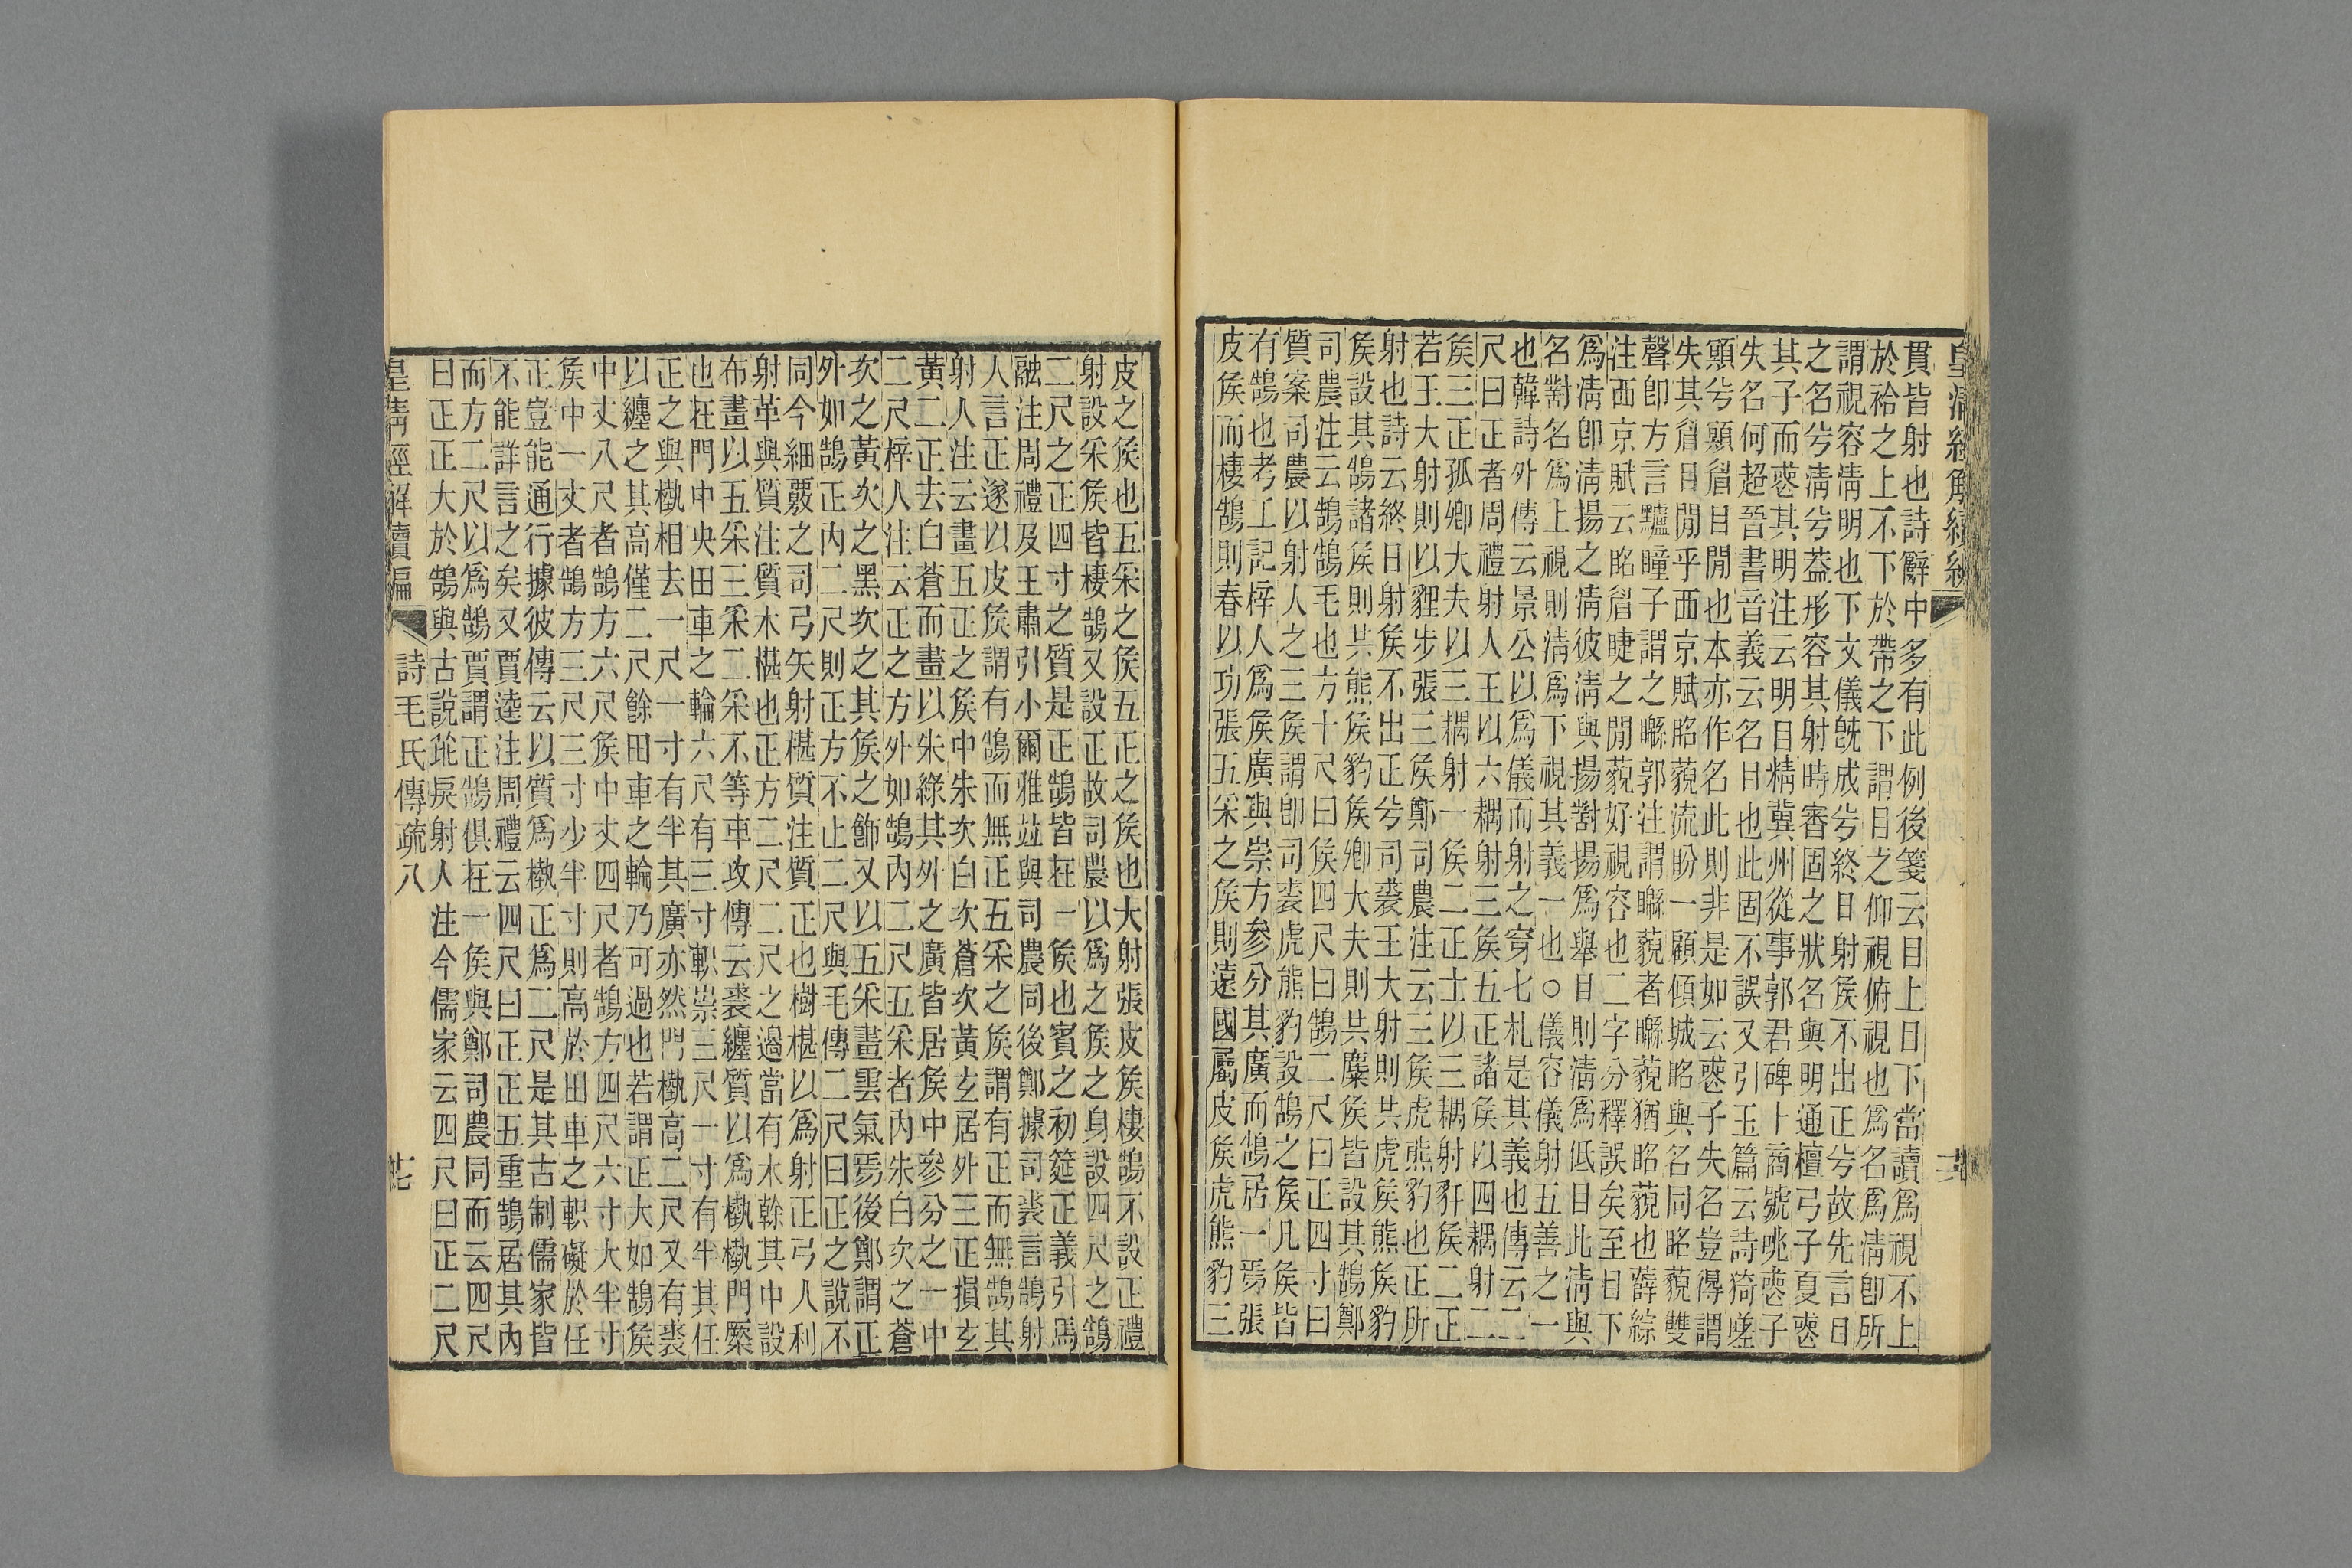 皇淸經解續編
貫皆射也詩辭中多有此例後箋云目上目下當讀爲視不上
於袷之上不下於帶之下謂目之仰視俯視也爲名爲淸卽所
謂視容淸明也下文儀旣成兮終日射矦不出正兮故先言目
之名兮淸兮蓋形容其射時審固之狀名與明通檀弓子夏喪
其子而喪其明注云明目精冀州從事郭君碑卜商號咷喪子
失名何超晉書音義云名目也此固不誤又引玉篇云詩猗嗟
顯兮顯眉目閒也本亦作名此則非是如云喪子失名豈得謂
失其眉目閒乎西京賦眳藐流盼一顧傾城眳與名同眳藐雙
聲卽方言驢瞳子謂之䁵郭注謂䁵藐者䁵藐猶眳藐也薛綜
注西京賦云眳眉睫之閒藐好視容也二字分釋誤矣至目下
爲淸卽淸揚之淸彼淸與揚對揚爲舉目則淸爲低目此淸與
名對名爲上視則淸爲下視其義一也○儀容儀射五善之一
也韓詩外傳云景公以爲儀而射之穿七札是其義也傳云二
尺曰正者周禮射人王以六耦射三矦五正諸矦以四耦射二
矦三正孤卿大夫以三耦射一矦二正士以三耦射豻矦二正
若王大射則以貍步張三矦鄭司農注云三矦虎熊豹也正所
射也詩云終日射矦不出正兮司裘王大射則共虎矦熊矦豹
矦設其鵠諸矦則共熊矦豹矦卿大夫則共麋矦皆設其鵠鄭
司農注云鵠鵠毛也方十尺曰矦四尺曰鵠二尺曰正四寸曰
質案司農以射人之三矦謂卽司裘虎熊豹設鵠之矦凡矦皆
有鵠也考工記梓人爲矦廣與崇方參分其廣而鵠居一焉張
皮矦而棲鵠則春以功張五采之矦則遠國屬皮矦虎熊豹三
皮之矦也五采之矦五正之矦也大射張皮矦棲鵠不設正禮
射設采矦皆棲鵠又設正故司農以爲之矦之身設四尺之鵠
二尺之正四寸之質是正鵠皆在一矦也賓之初筵正義引馬
融注周禮及王肅引小爾雅竝與司農同後鄭據司裘言鵠射
人言正遂以皮矦謂有鵠而無正五采之矦謂有正而無鵠其
射人注云畫五正之矦中朱次白次蒼次黃玄居外三正損玄
黃二正去白蒼而畫以朱綠其外之廣皆居矦中參分之一中
二尺梓人注云正之方外如鵠內二尺五采者內朱白次之蒼
次之黃次之黑次之其矦之飾又以五采畫雲氣焉後鄭謂正
外如鵠正內二尺則正方不止二尺與毛傳二尺曰正之說不
同今細覈之司弓矢射椹質注質正也樹椹以爲射正弓人利
射革與質注質木椹也正方二尺二尺之過當有木榦其中設
布畫以五采三采二采不等車攻傳云裘纏質以爲槷槷門槷
也在門中央田車之輪六尺有三寸軹崇三尺一寸有半其任
正之與槷相去一尺一寸有半其廣亦然門槷高二尺又有裘
以纏之其高僅二尺餘田車之輪乃可過也若謂正大如鵠矦
中丈八尺者鵠方六尺矦中丈四尺者鵠方四尺六寸大半寸
矦中一丈者鵠方三尺三寸少半寸則高於田車之軹礙於任
正豈能通行據彼傳云以質爲槷正爲二尺是其古制儒家皆
不能詳言之矣又賈逵注周禮云四尺曰正正五重鵠居其內
而方二尺以爲鵠賈謂正鵠俱在一矦與鄭司農同而云四尺
曰正正大於鵠與古說㽿戾射人注今儒家云四尺曰正二尺
皇淸經解續編 詩毛氏傳疏八